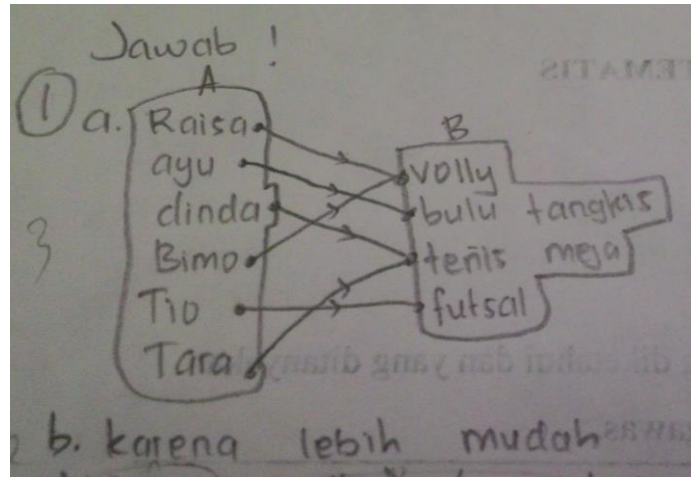 Jawab !
① a.
A
Raisa
ayu
dinda
Bimo
Tio
Tara
B
volly
bulu tangkis
tenis meja
futsal
3
b. karena lebih mudah